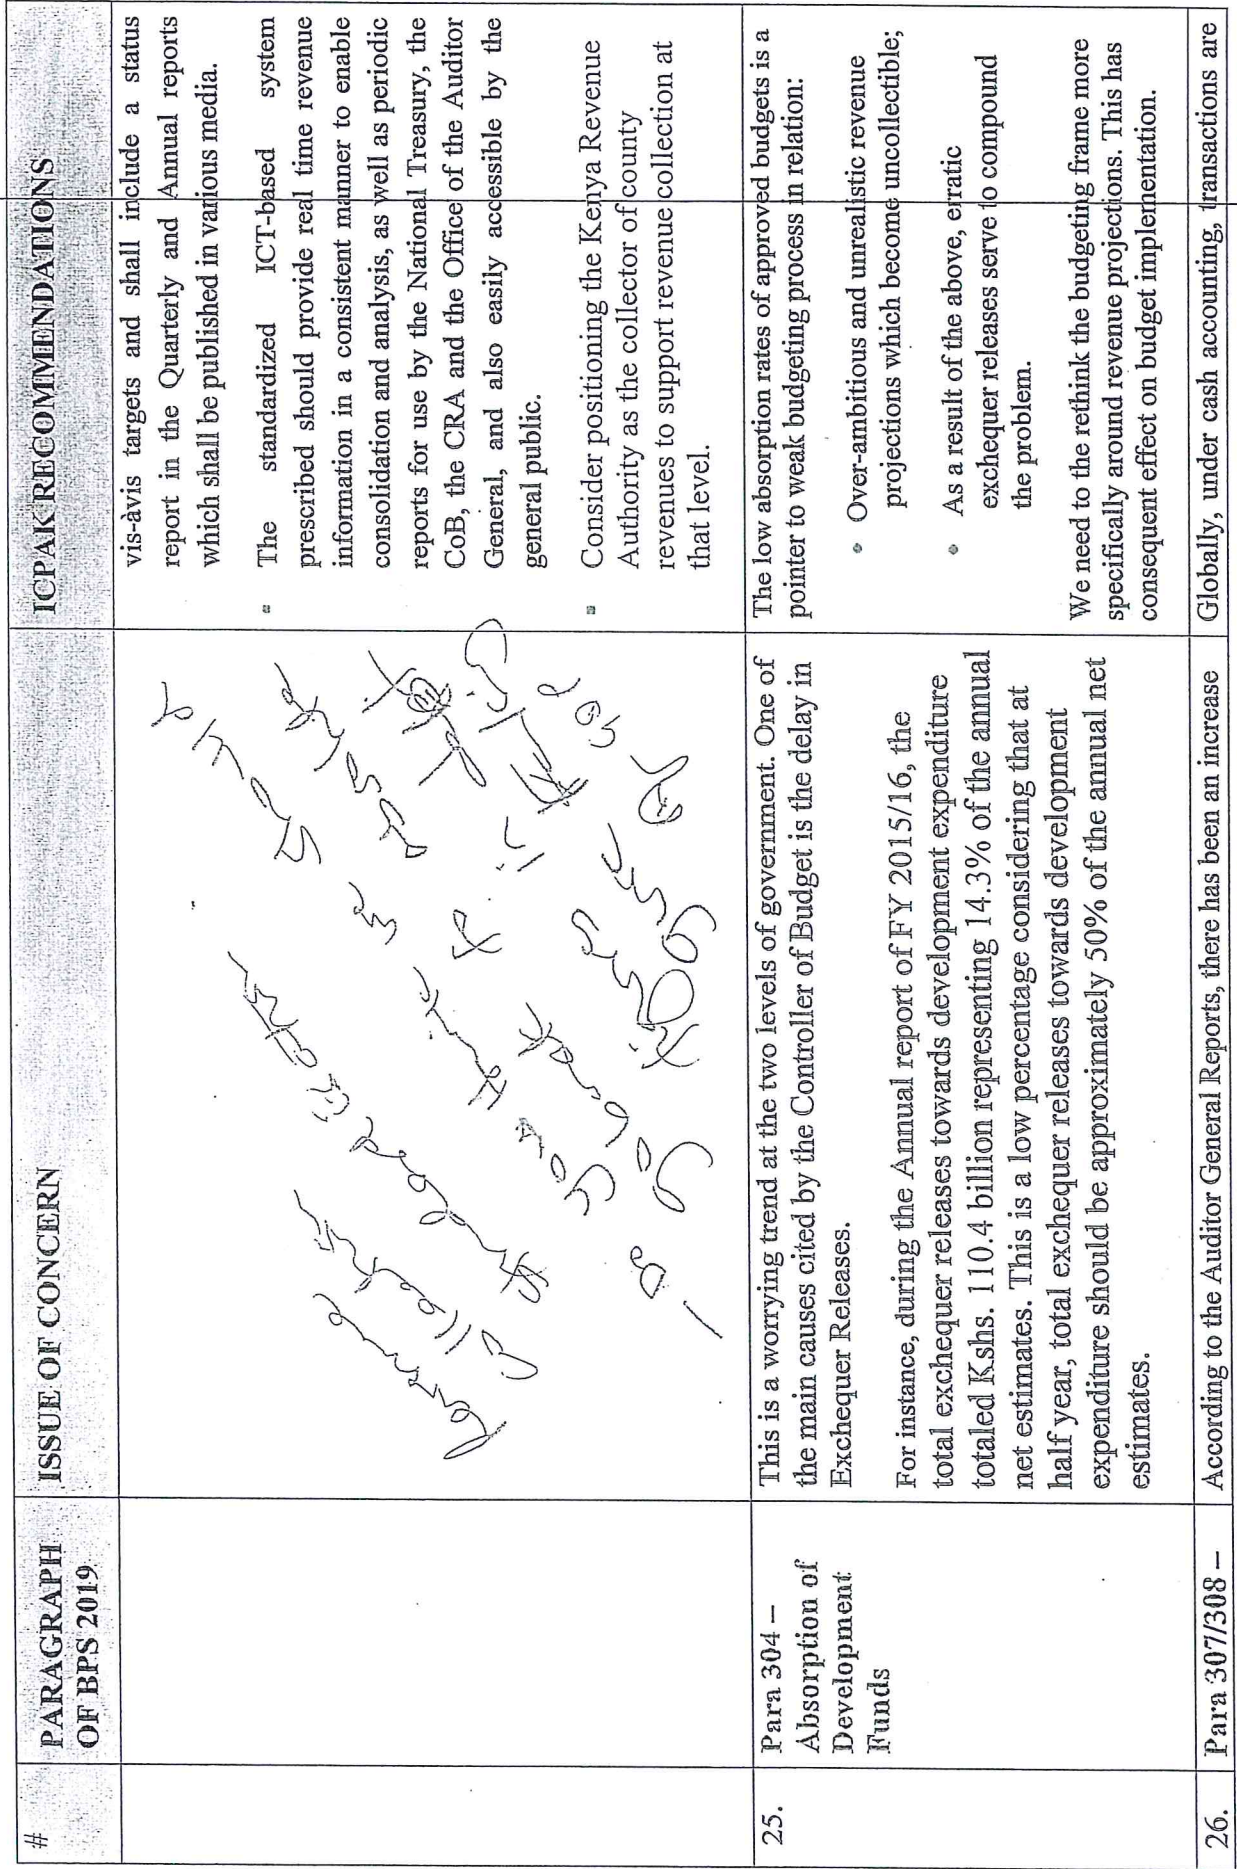 #
PARAGRAPH
OF BPS 2019
ISSUE OF CONCERN
ICPAK RECOMMENDATIONS
vis-àvis targets and shall include a status
report in the Quarterly and Annual reports
which shall be published in various media.
▪ The standardized ICT-based system
prescribed should provide real time revenue
information in a consistent manner to enable
consolidation and analysis, as well as periodic
reports for use by the National Treasury, the
CoB, the CRA and the Office of the Auditor
General, and also easily accessible by the
general public.
▪ Consider positioning the Kenya Revenue
Authority as the collector of county
revenues to support revenue collection at
that level.
25.
Para 304 –
Absorption of
Development
Funds
This is a worrying trend at the two levels of government. One of
the main causes cited by the Controller of Budget is the delay in
Exchequer Releases.
For instance, during the Annual report of FY 2015/16, the
total exchequer releases towards development expenditure
totaled Kshs. 110.4 billion representing 14.3% of the annual
net estimates. This is a low percentage considering that at
half year, total exchequer releases towards development
expenditure should be approximately 50% of the annual net
estimates.
The low absorption rates of approved budgets is a
pointer to weak budgeting process in relation:
• Over-ambitious and unrealistic revenue
projections which become uncollectible;
• As a result of the above, erratic
exchequer releases serve to compound
the problem.
We need to the rethink the budgeting frame more
specifically around revenue projections. This has
consequent effect on budget implementation.
26.
Para 307/308 –
According to the Auditor General Reports, there has been an increase
Globally, under cash accounting, transactions are